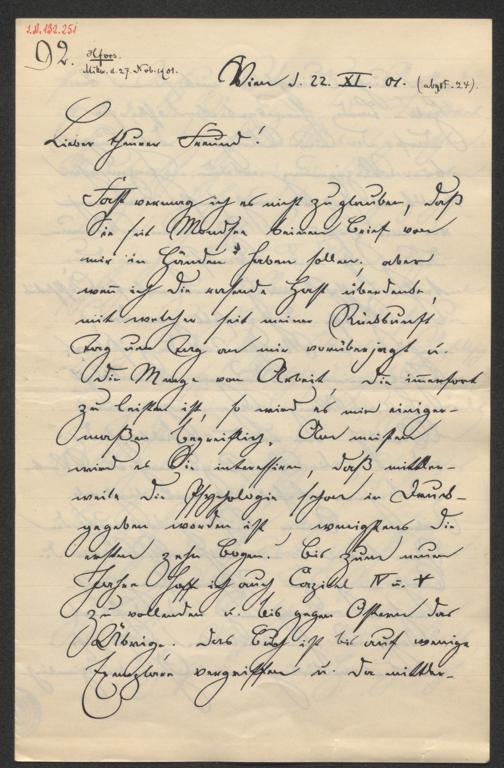 I.N. 132.251
92. Hfors.
Mikr. d. 27. Nov. 1901.
Wien d. 22. XI. 01. (abges. 24).
Lieber theurer Freund!
Fast vermag ich es nicht zu glauben, daß
Sie seit Mondsee keinen Brief von
mir in Händen haben sollen; aber
wenn ich die rasende Hast überdenke,
mit welcher seit meiner Rückkunft
Tag um Tag an mir vorüberjagt u.
die Menge von Arbeit, die immerfort
zu leisten ist, so wird es mir einiger-
maßen begreiflich. Am meisten
wird es Sie interessiren, daß mittler-
weile die Psychologie schon in Druck
gegeben worden ist, wenigstens die
ersten zehn Bogen. Bis zum neuen
Jahre hoffe ich auch Capitel IV u. V
zu vollenden u. bis gegen Ostern das
Übrige. Das Buch ist bis auf wenige
Exemplare vergriffen u. da mittler-